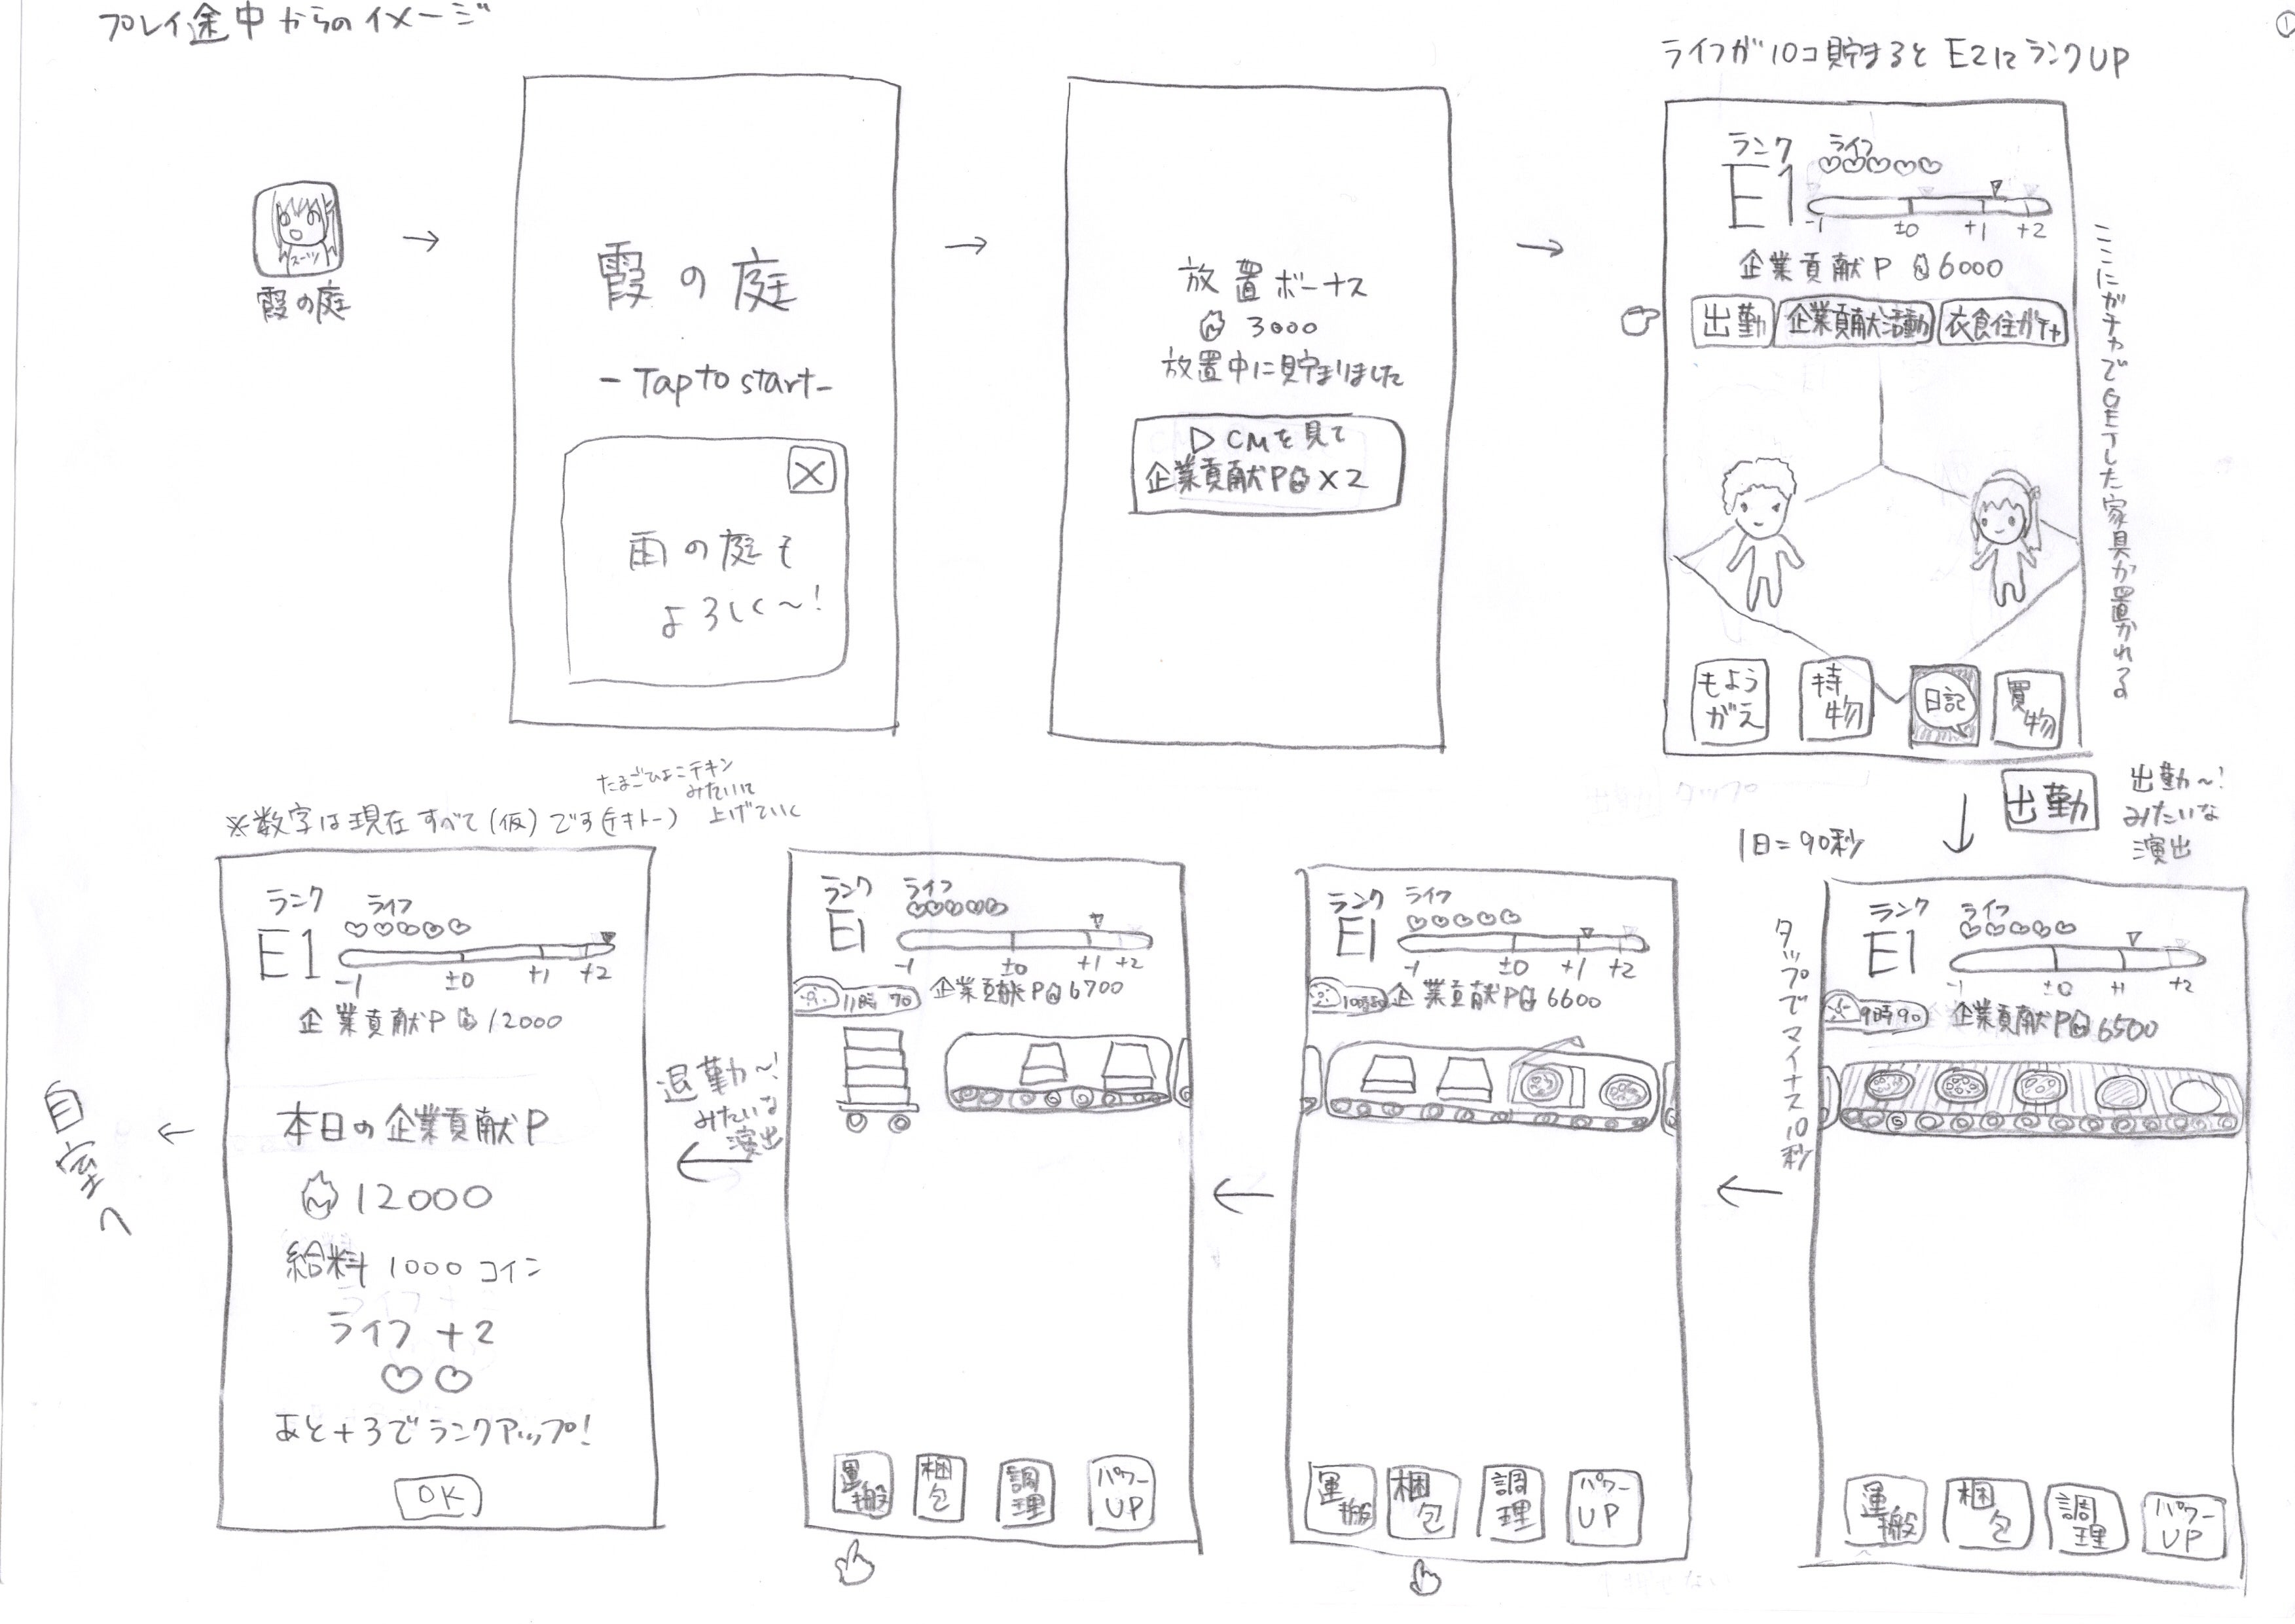 プレイ途中からのイメージ
①
スーツ
霞の庭
霞の庭
-Tap to start-
×
雨の庭も
よろしく〜!
放置ボーナス
3000
放置中に貯まりました
▷CMを見て
企業貢献P×2
ライフが10コ貯まるとE2にランクUP
ランク
ライフ
E1
-1 ±0 +1 +2
企業貢献P 6000
出勤
企業貢献活動
衣食住ガチャ
ここにガチャでGETした家具が置かれる
もよう
がえ
持
物
日記
買
物
出勤
出勤〜!
みたいな
演出
1日=90秒
ランク
ライフ
E1
-1 ±0 +1 +2
9時 90
企業貢献P 6500
運
搬
梱
包
調
理
パワー
UP
タップでマイナス10秒
ランク
ライフ
E1
-1 ±0 +1 +2
企業貢献P 6600
運
搬
梱
包
調
理
パワー
UP
ランク
ライフ
E1
-1 ±0 +1 +2
11時 70
企業貢献P 6700
運
搬
梱
包
調
理
パワー
UP
退勤〜!
みたいな
演出
※数字は現在すべて(仮)です(テキトー)
たまごひよこチキン
みたいに
上げていく
ランク
ライフ
E1
-1 ±0 +1 +2
企業貢献P 12000
本日の企業貢献P
12000
給料 1000 コイン
ライフ +2
あと+3でランクアップ!
OK
自室へ